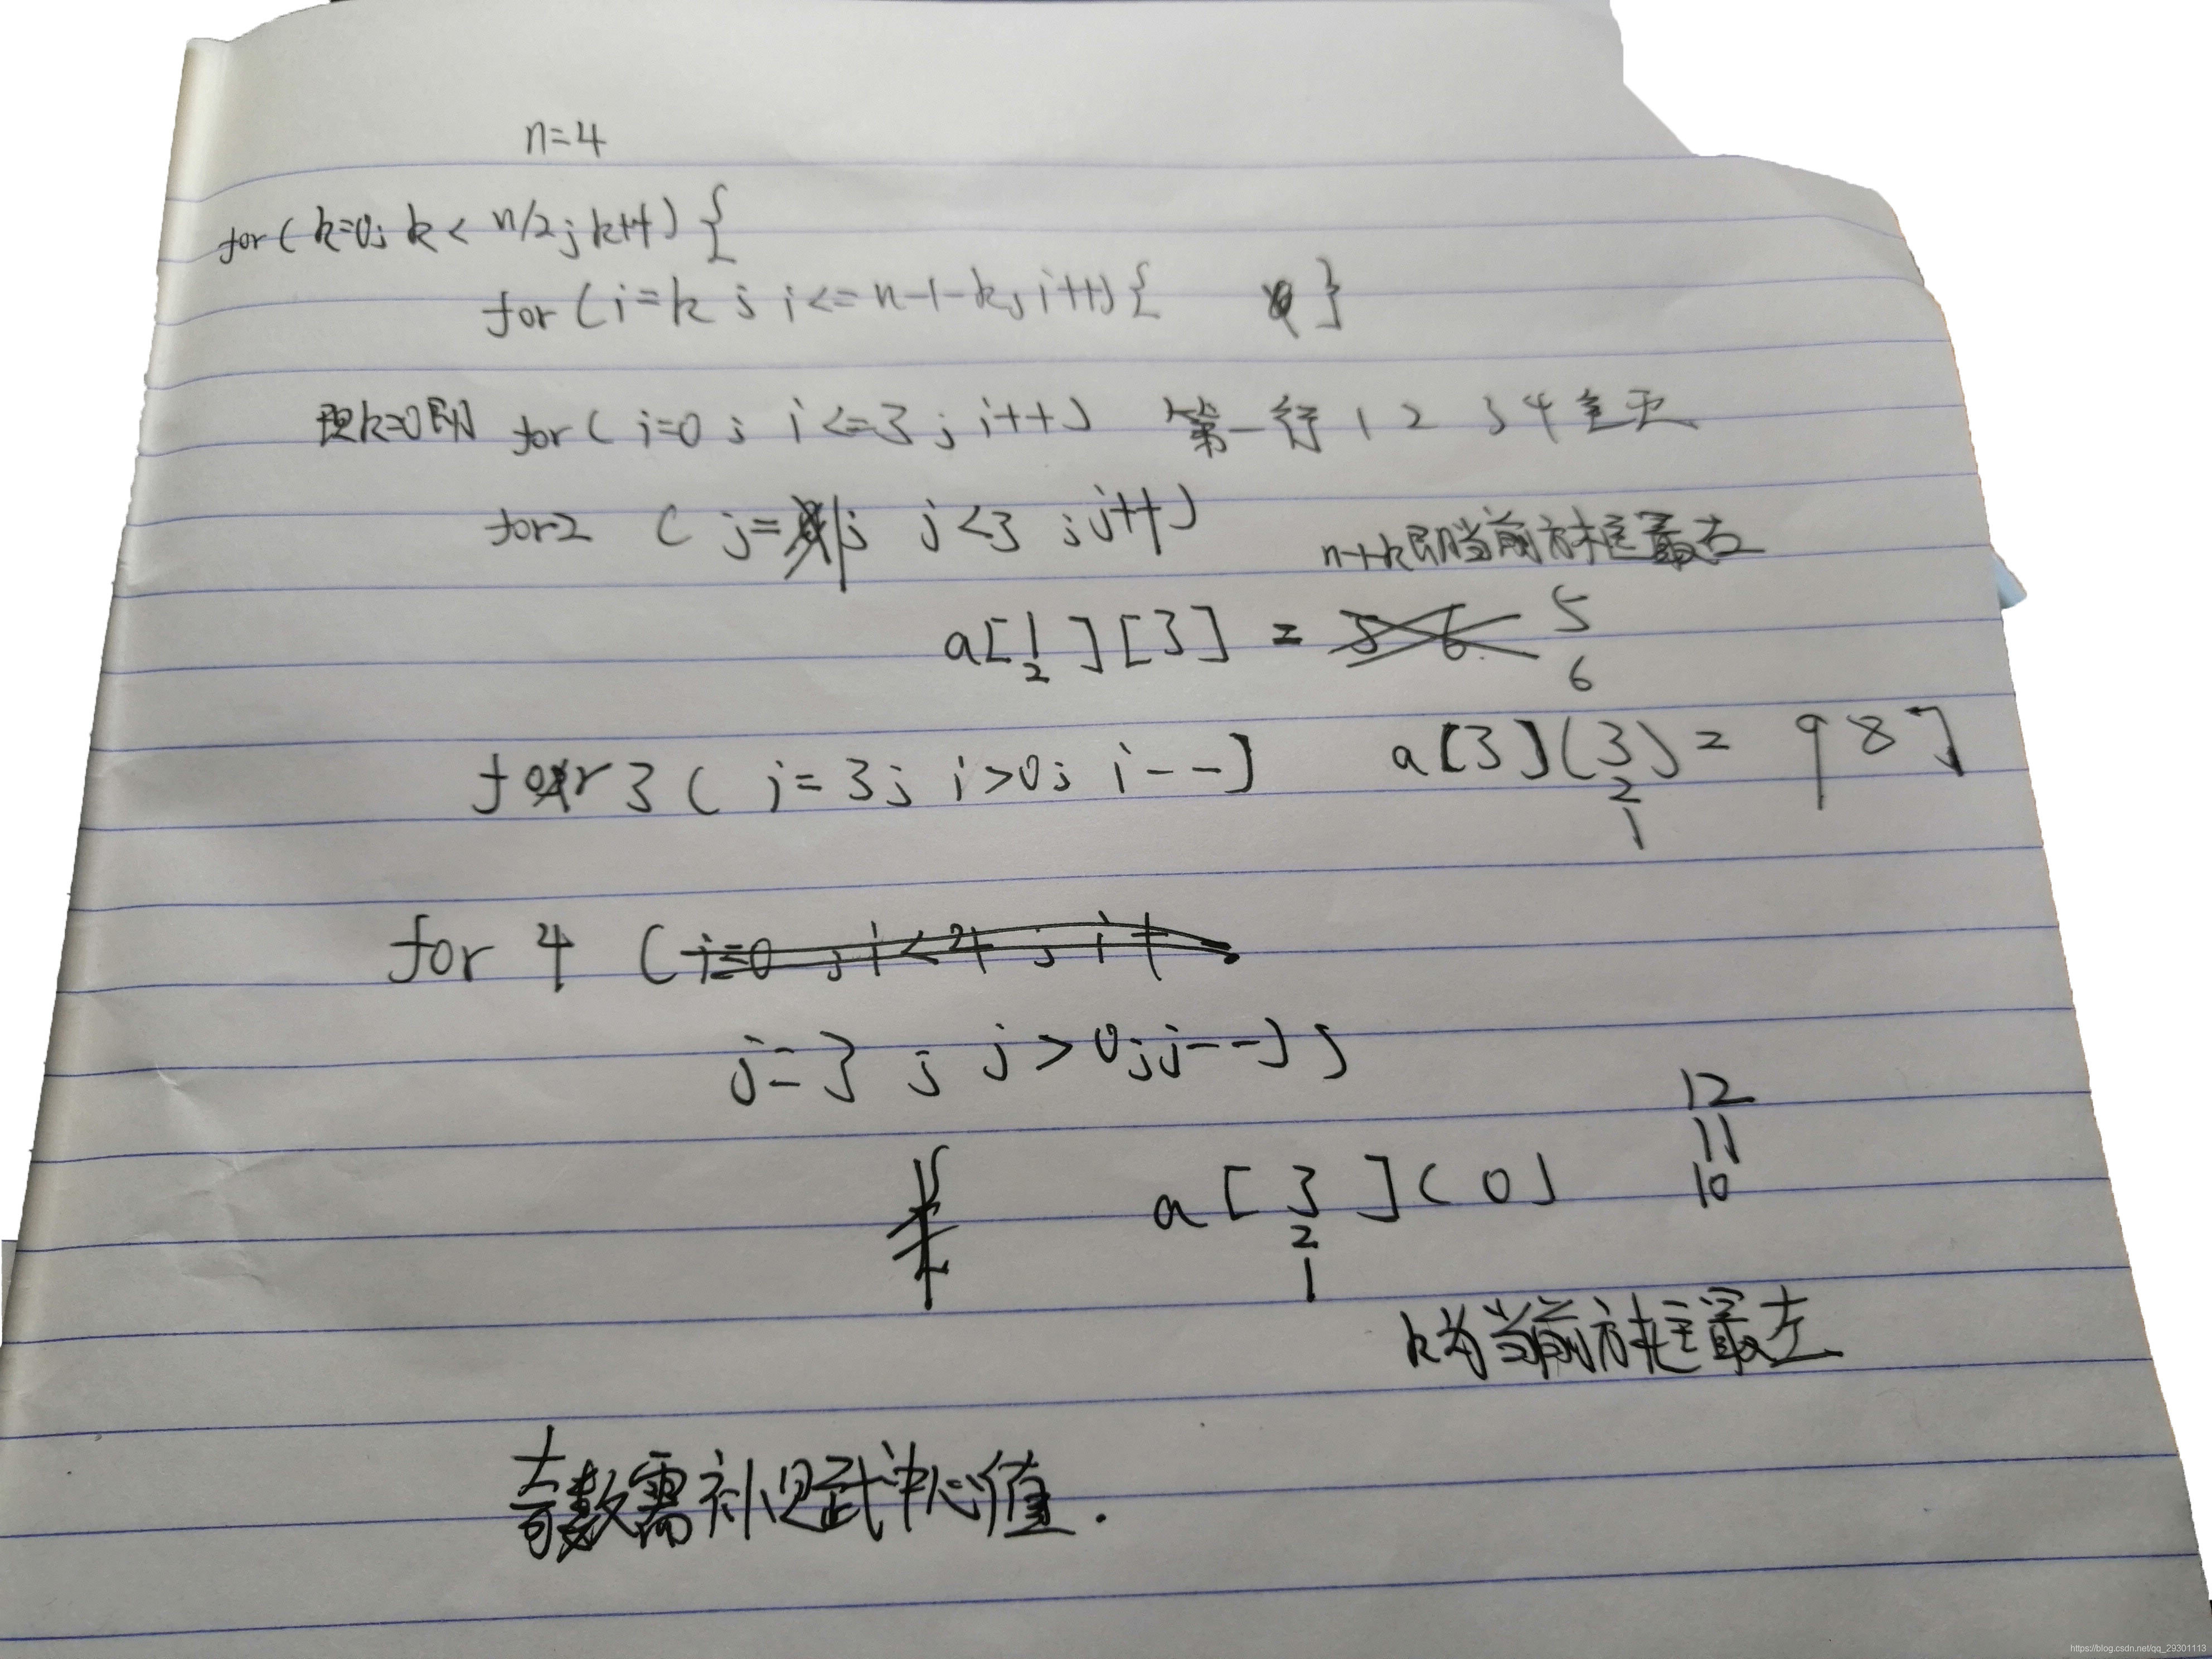 n=4
for( k=0; k< n/2; k++) {
for (i=k; i<=n-1-k; i++){ }
k=0即 for( i=0; i<=3; i++) 第一行 1 2 3 4
for2 ( j=1; j<3; j++)
即当前方框最右
a[1][3] = 5
2 6
for 3 ( i=3; i>0; i--) a[3](3)= 9 8 7
2
1
for 4 (
j=3; j>0; j--);
12
11
a[3](0) 10
2
1
k为当前方框最左
奇数需补足中心值.
https://blog.csdn.net/qq_29301113